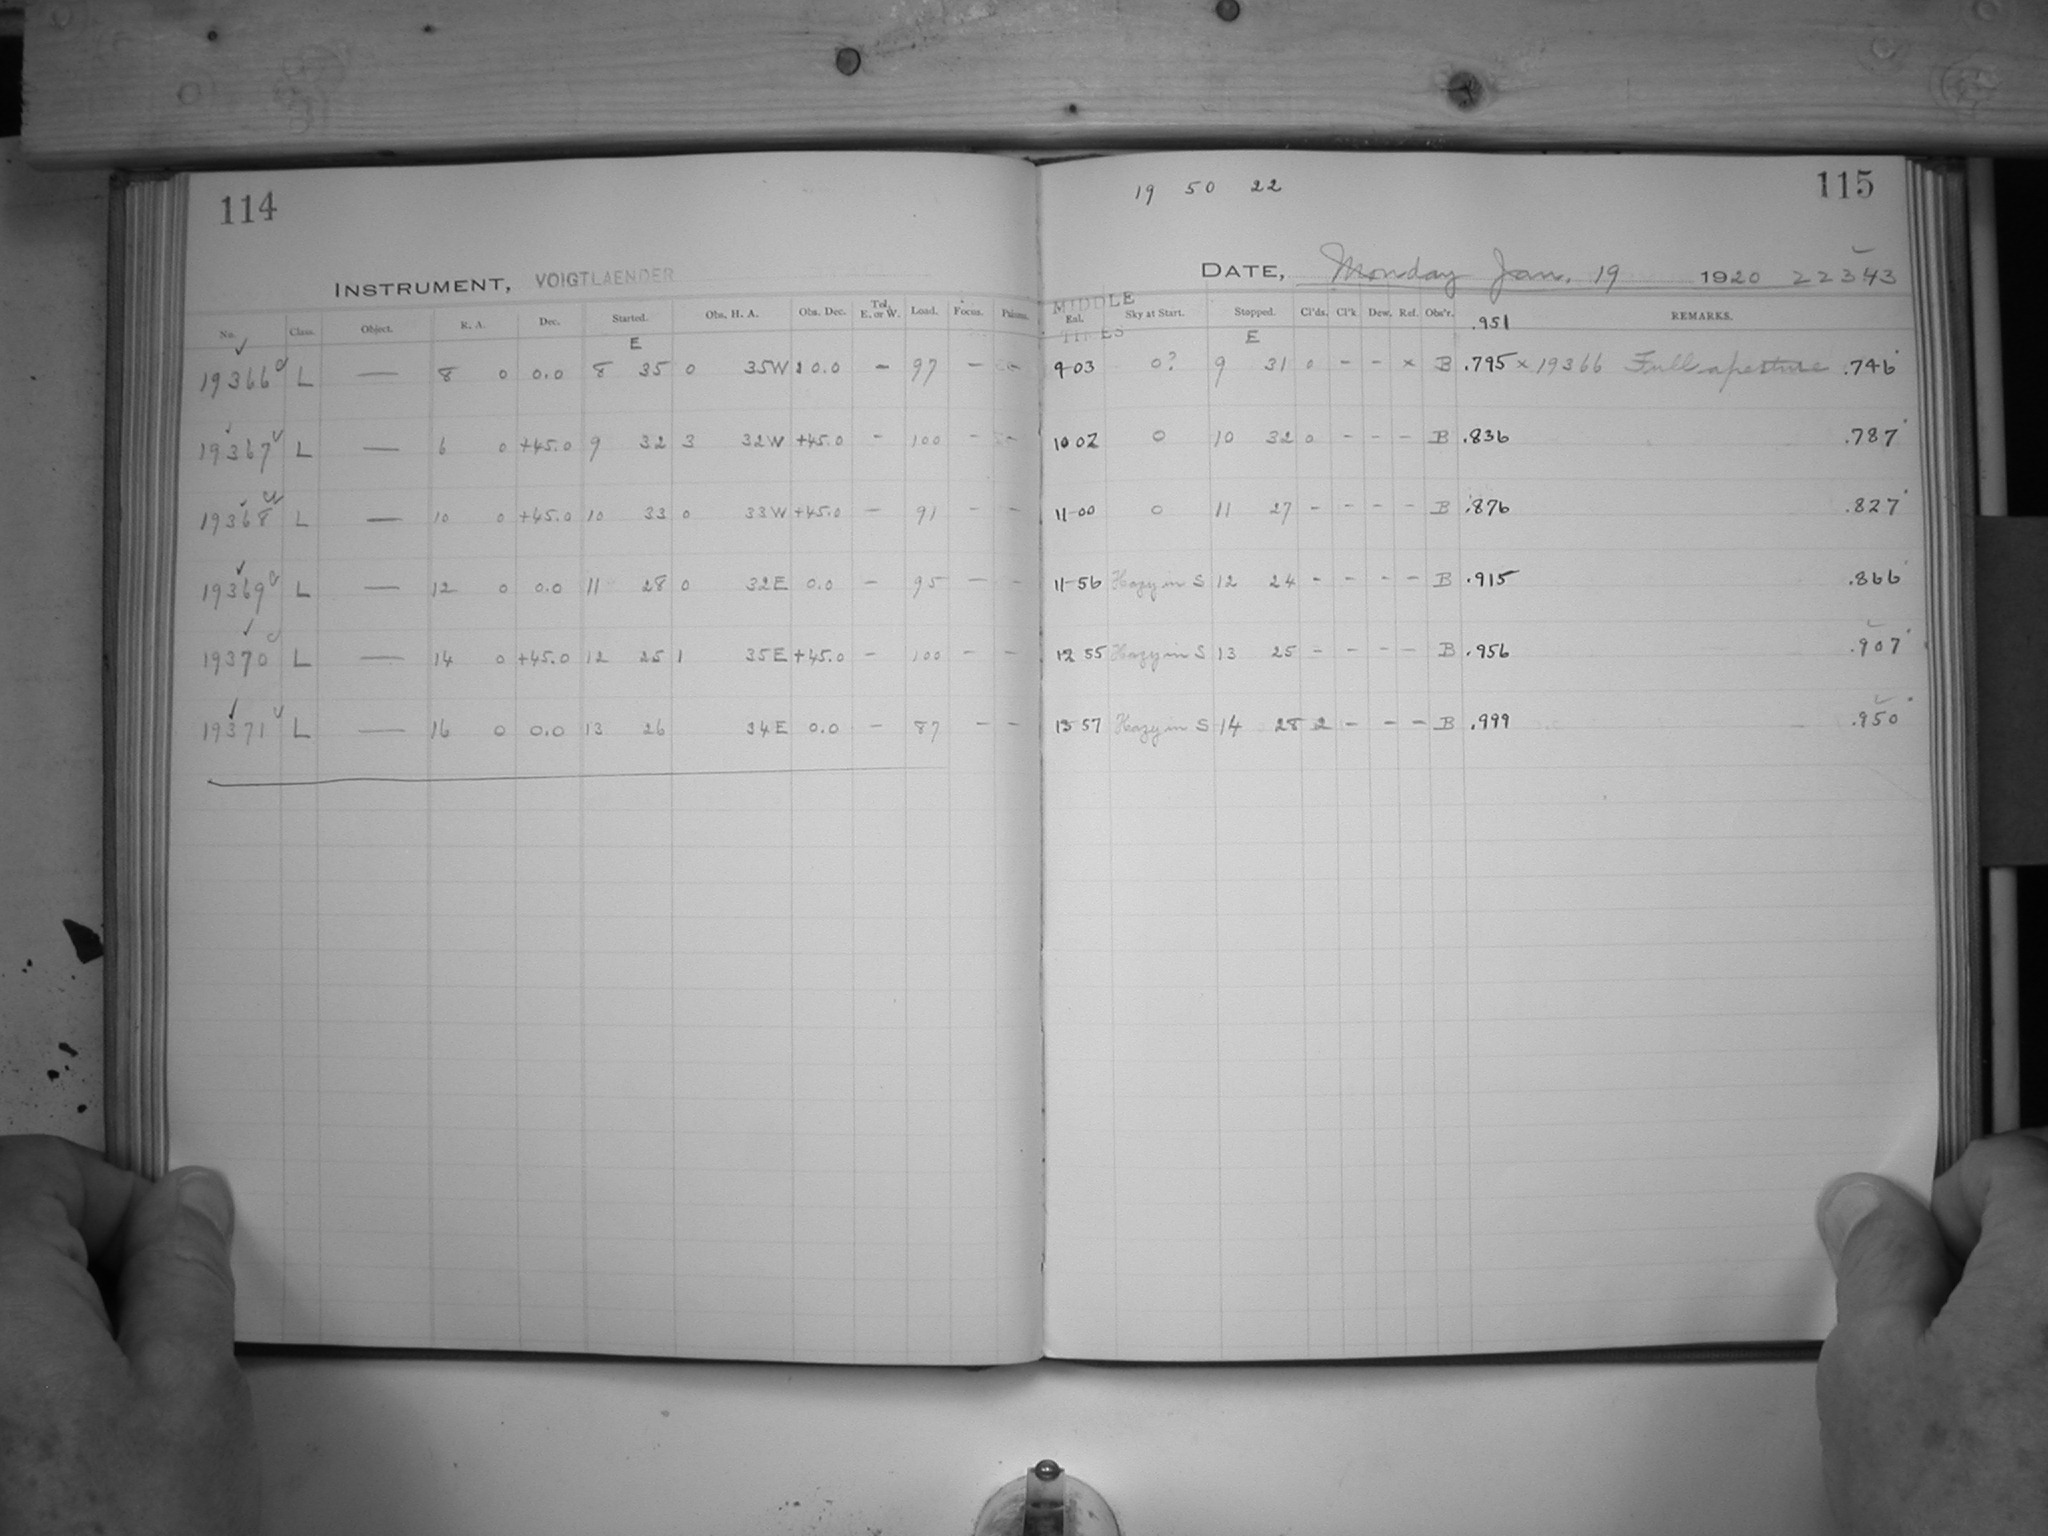 114
INSTRUMENT, VOIGTLAENDER
No. Class. Object. R. A. Dec. Started. Obs. H. A. Obs. Dec. Tel. E. or W. Load. Focus.
E
19366 L — 8 0 0.0 8 35 0 35W 0.0 - 97 -
19367 L — 6 0 +45.0 9 32 3 32W +45.0 - 100 - -
19368 L — 10 0 +45.0 10 33 0 33W +45.0 - 91 - -
19369 L — 12 0 0.0 11 28 0 32E 0.0 - 95 - -
19370 L — 14 0 +45.0 12 25 1 35E +45.0 - 100 - -
19371 L — 16 0 0.0 13 26 34E 0.0 - 87 - -
19 50 22
115
DATE, Monday Jan. 19 1920 22343
MIDDLE
Sky at Start. Stopped. Cl'ds. Cl'k. Dew. Ref. Obs'r. .951 REMARKS.
TIMES E
9 03 0? 9 31 0 - - x B .795 x 19366 Full aperture .746
10 02 0 10 32 0 - - - B .836 .787
11 00 0 11 27 - - - - B .876 .827
11 56 Hazy in S 12 24 - - - - B .915 .866
12 55 Hazy in S 13 25 - - - - B .956 .907
13 57 Hazy in S 14 28 2 - - - B .999 .950